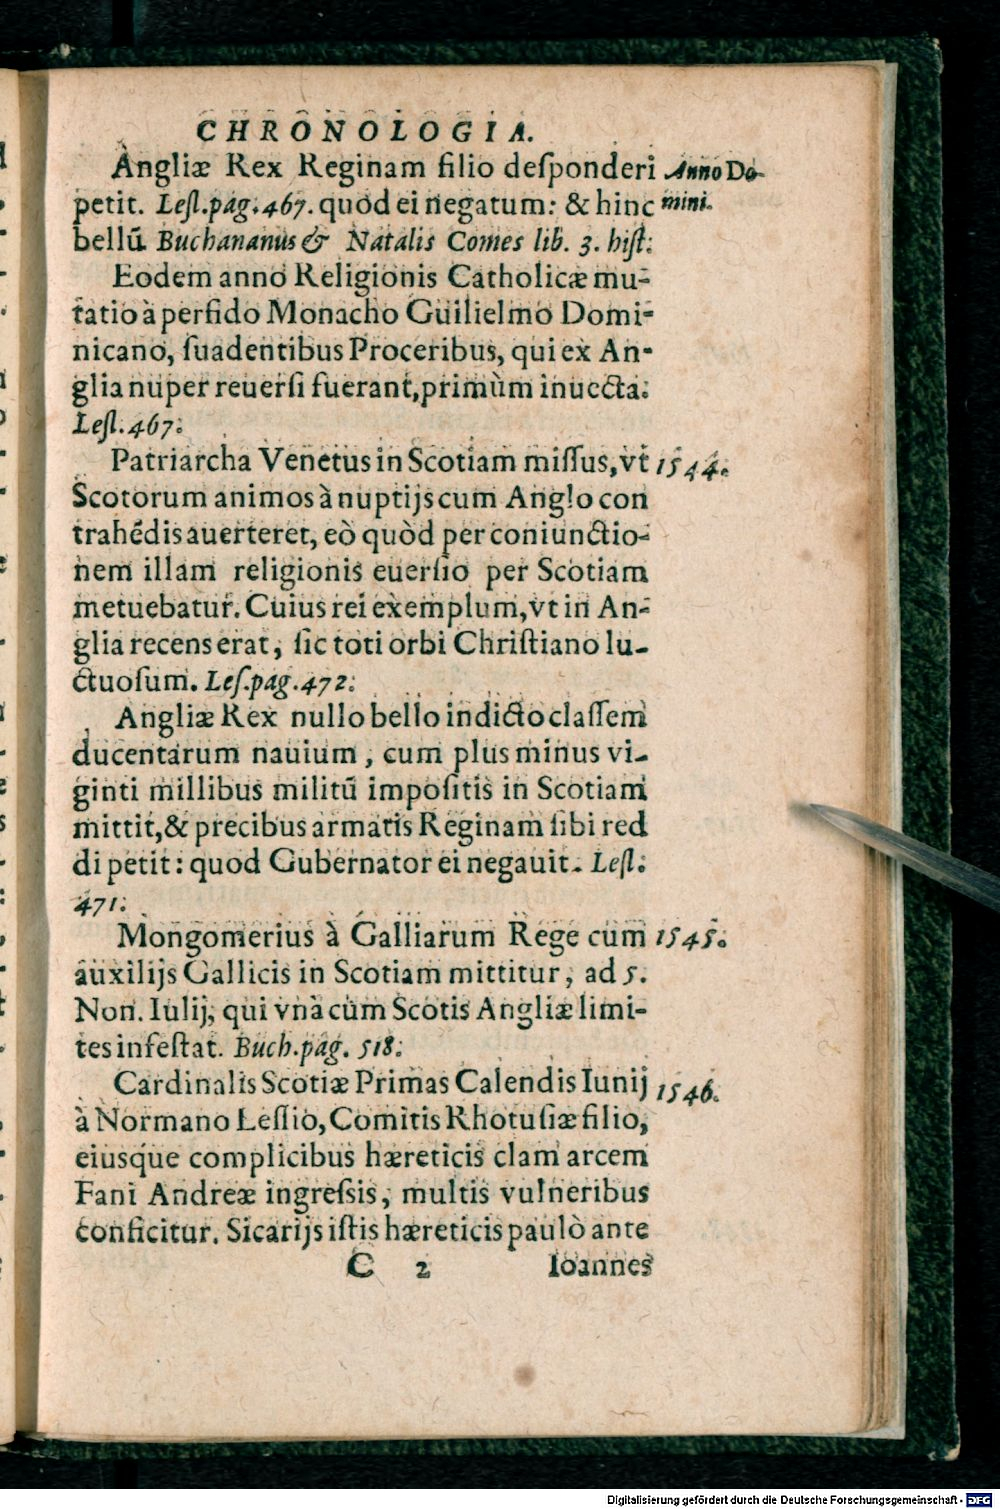 CHRONOLOGIA.
Angliæ Rex Reginam filio deſponderi Anno Do-
petit. Leſl.pag.467. quod ei negatum: & hinc mini.
bellū Buchananus & Natalis Comes lib. 3. hiſt.
Eodem anno Religionis Catholicæ mu-
tatio à perfido Monacho Guilielmo Domi-
nicano, ſuadentibus Proceribus, qui ex An-
glia nuper reuerſi fuerant, primùm inuecta.
Leſl.467.
Patriarcha Venetus in Scotiam miſſus, vt 1544.
Scotorum animos à nuptijs cum Anglo con
trahēdis auerteret, eò quòd per coniunctio-
nem illam religionis euerſio per Scotiam
metuebatur. Cuius rei exemplum, vt in An-
glia recens erat, ſic toti orbi Chriſtiano lu-
ctuoſum. Leſ.pag.472.
Angliæ Rex nullo bello indicto claſſem
ducentarum nauium, cum plus minus vi-
ginti millibus militū impoſitis in Scotiam
mittit, & precibus armatis Reginam ſibi red
di petit: quod Gubernator ei negauit. Leſl.
471.
Mongomerius à Galliarum Rege cum 1545.
auxilijs Gallicis in Scotiam mittitur, ad 5.
Non. Iulij, qui vnà cùm Scotis Angliæ limi-
tes infeſtat. Buch.pag. 518.
Cardinalis Scotiæ Primas Calendis Iunij 1546.
à Normano Leſlio, Comitis Rhotuſiæ filio,
eiusque complicibus hæreticis clam arcem
Fani Andreæ ingreſsis, multis vulneribus
conficitur. Sicarijs iſtis hæreticis paulò ante
C 2 Ioannes
Digitalisierung gefördert durch die Deutsche Forschungsgemeinschaft - DFG